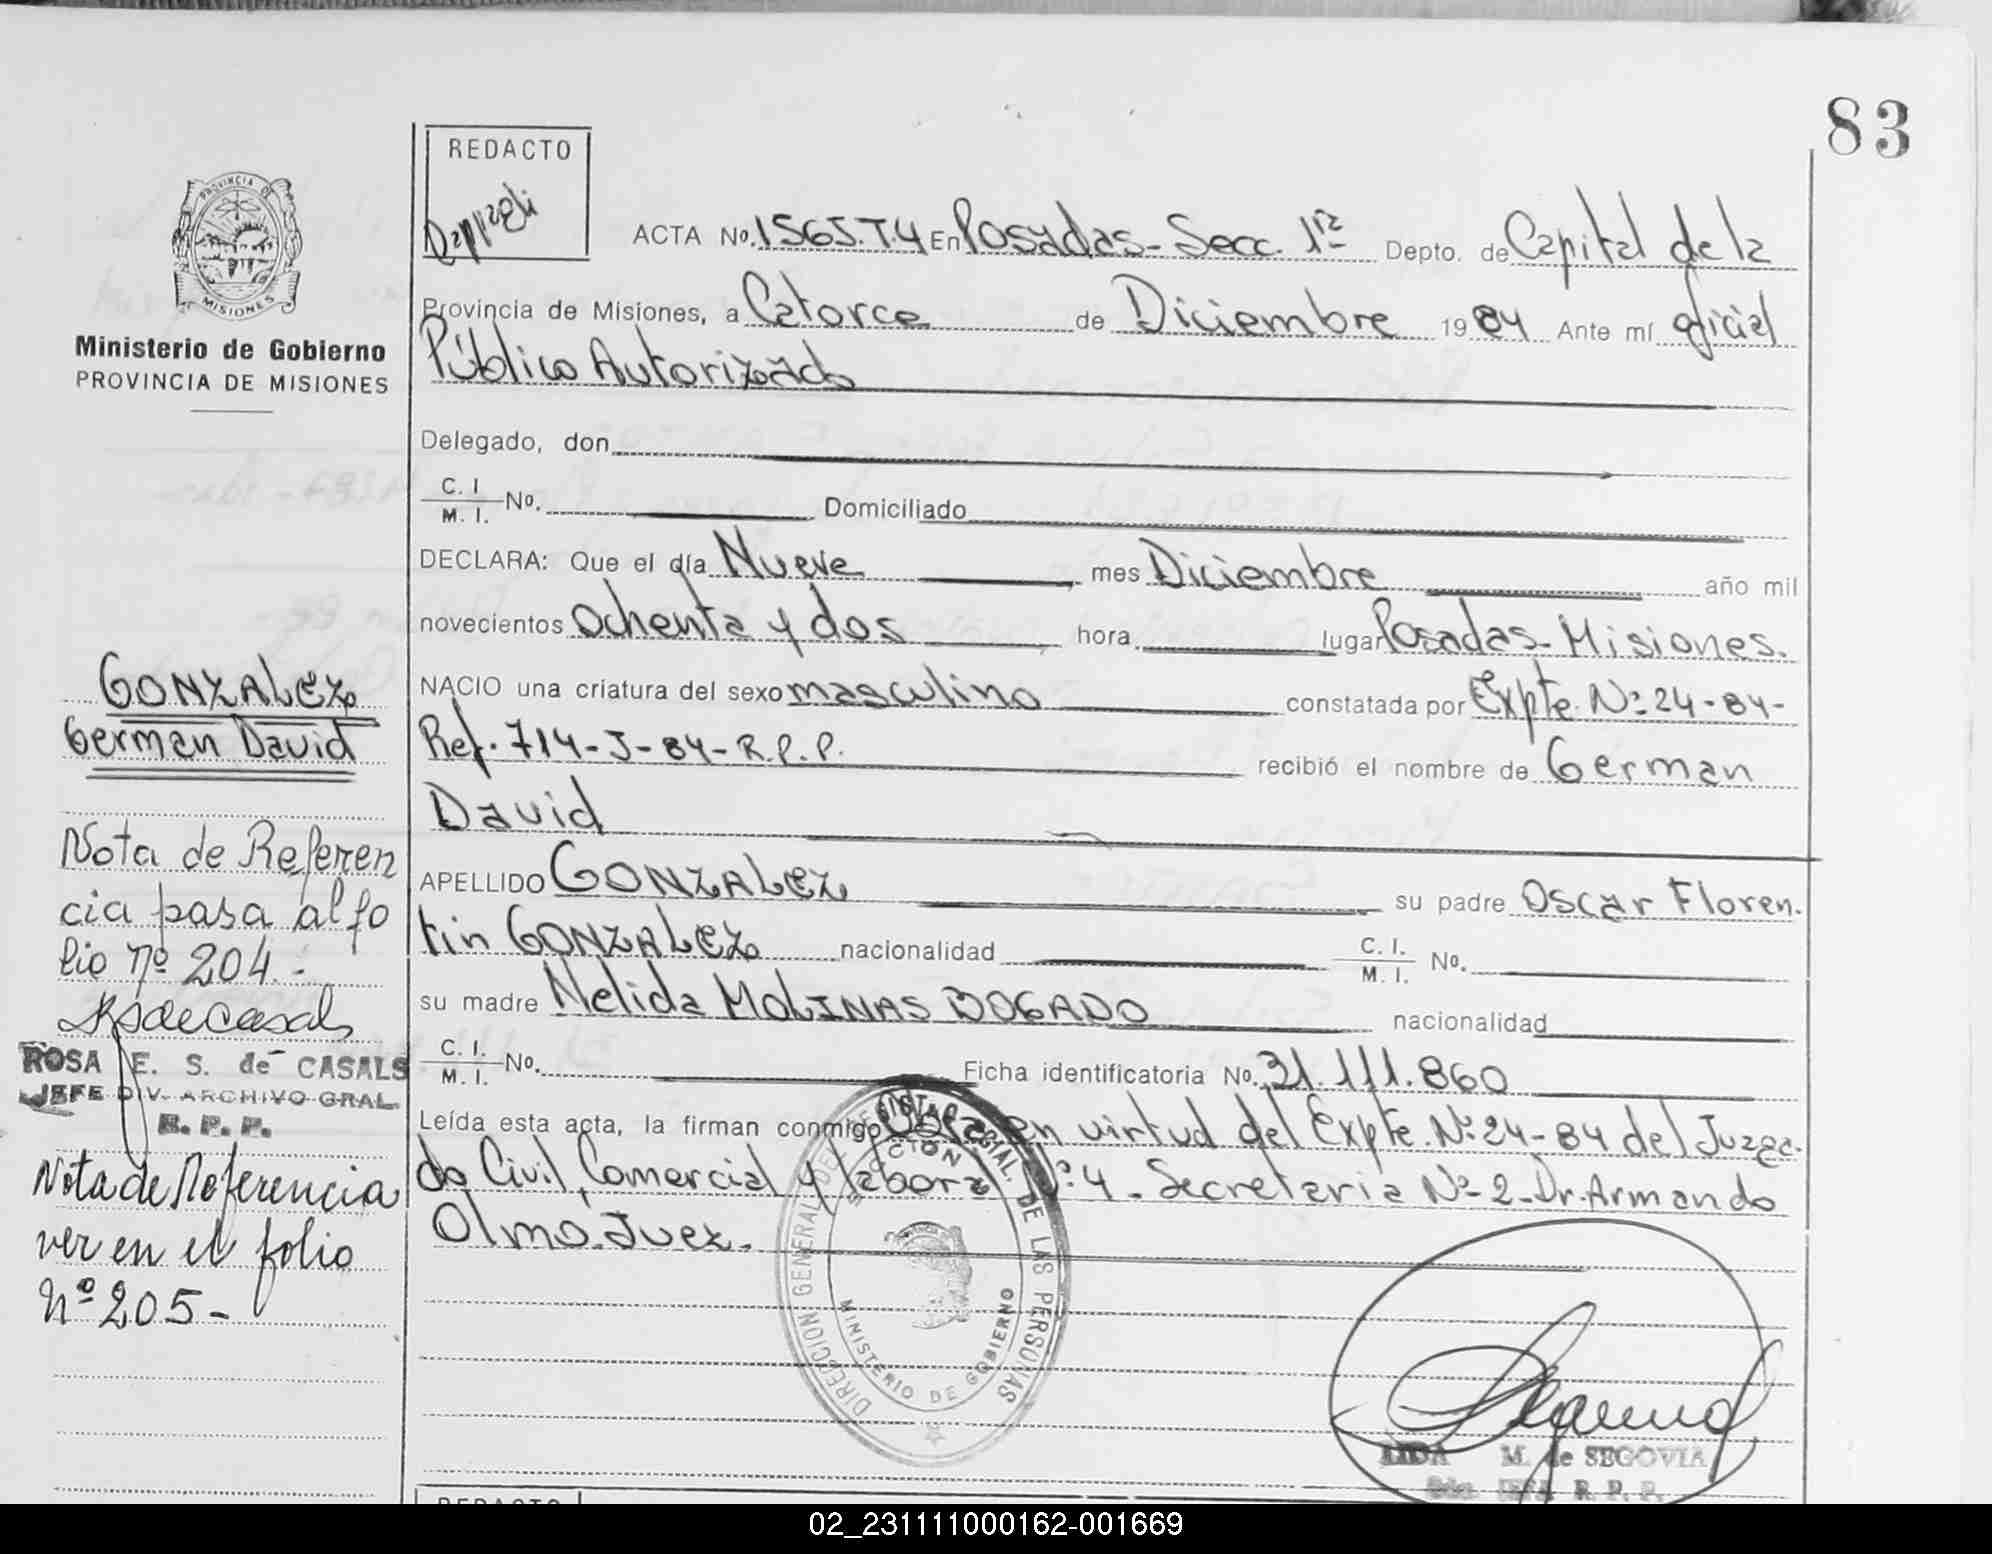 83
REDACTO
ACTA No. 1565.T.4 En Posadas- Secc. 1ra Depto. de Capital de la
Provincia de Misiones, a Catorce de Diciembre 1984 Ante mí oficial
Público Autorizado
Delegado, don
C. I. / M. I. No. Domiciliado
DECLARA: Que el día Nueve mes Diciembre año mil
novecientos ochenta y dos hora lugar Posadas- Misiones.
NACIO una criatura del sexo masculino constatada por Expte. Nº 24-84-
Ref. 714-J-84-R.P.P. recibió el nombre de German
David
APELLIDO GONZALEZ su padre Oscar Floren.
tin GONZALEZ nacionalidad C. I. / M. I. No.
su madre Nelida MOLINAS DOGADO nacionalidad
C. I. / M. I. No. Ficha identificatoria No. 31.111.860
Leída esta acta, la firman conmigo en virtud del Expte. Nº 24-84 del Juzga-
do Civil, Comercial y laboral Nº 4- Secretaria Nº 2- Dr. Armando
Olmo. Juez.
PROVINCIA DE
MISIONES
Ministerio de Gobierno
PROVINCIA DE MISIONES
GONZALEZ
German David
Nota de Referen
cia pasa al fo
lio nº 204.-
RSdeCasals
ROSA E. S. de CASALS
JEFE DIV. ARCHIVO GRAL.
R. P. P.
Nota de Referencia
ver en el folio
Nº 205-
DIRECCION GENERAL DEL REGISTRO PROVINCIAL DE LAS PERSONAS
MINISTERIO DE GOBIERNO
AIDA M. de SEGOVIA
R. P. P.
REDACTO
02_231111000162-001669